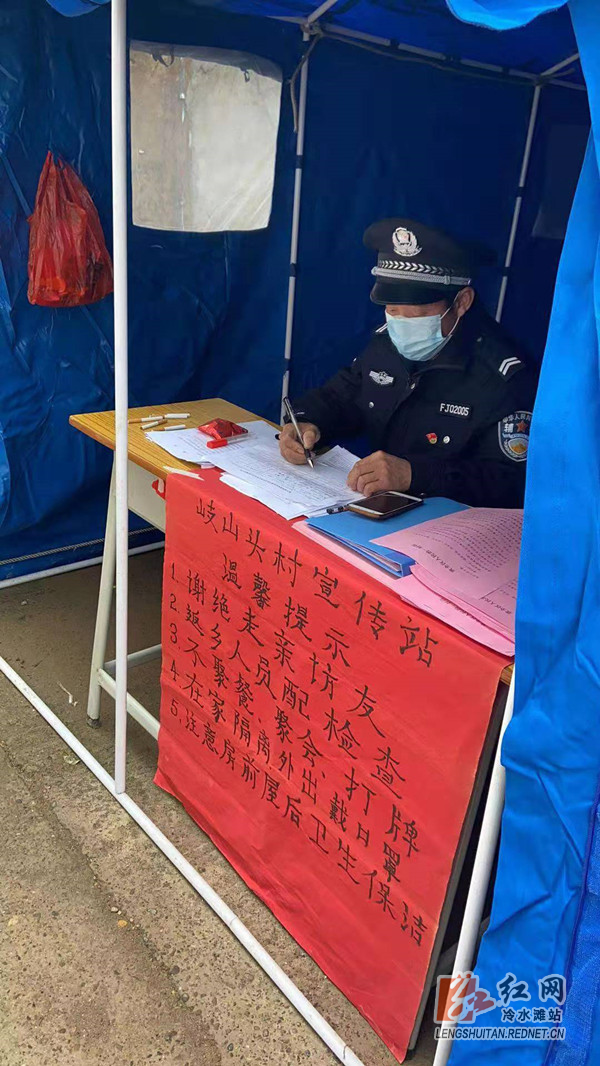 FJ02005
辅
岐山头村宣传站
温馨提示
1.谢绝走亲访友
2.返乡人员配检查
3.不聚餐、聚会、打牌
4.在家隔离外出戴口罩
5.注意房前屋后卫生保洁
红网
冷水滩站
LENGSHUITAN.REDNET.CN